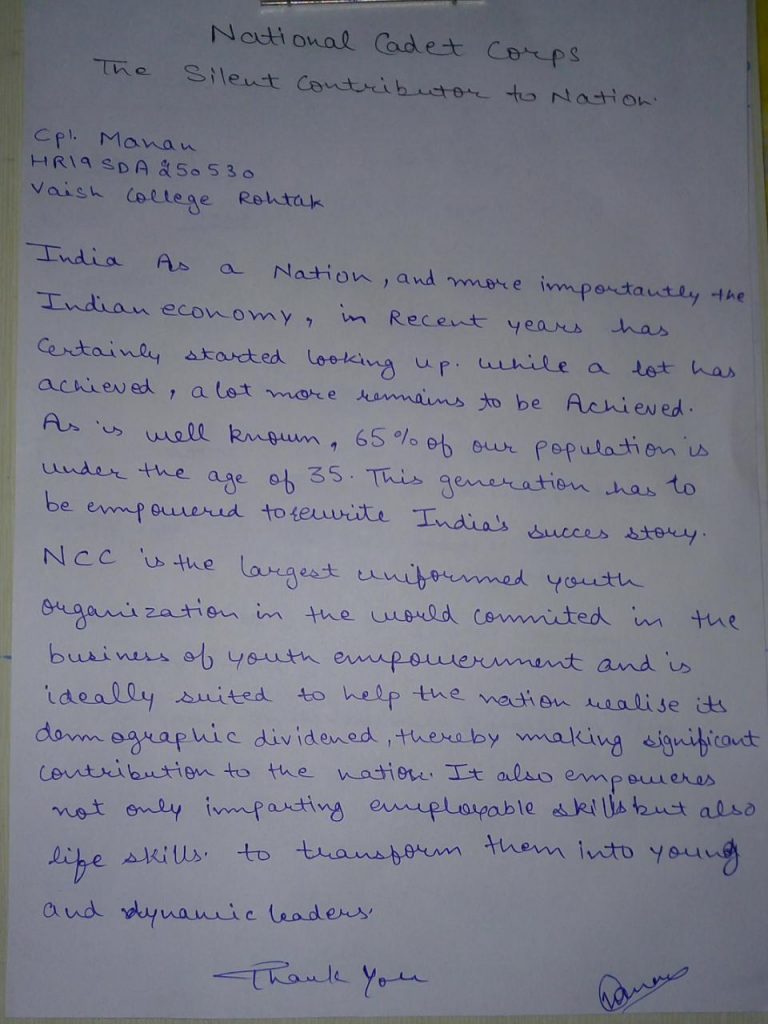 National Cadet Corps
The Silent Contributor to Nation.
Cpl. Manan
HR19 SDA 250530
Vaish College Rohtak
India As a Nation, and more importantly the
Indian economy, in Recent years has
Certainly started looking up. while a lot has
achieved, a lot more remains to be Achieved.
As is well known, 65% of our population is
under the age of 35. This generation has to
be empowered to rewrite India's succes story.
NCC is the largest uniformed youth
organization in the world commited in the
business of youth empowerment and is
ideally suited to help the nation realise its
demographic dividened, thereby making significant
contribution to the nation. It also empoweres
not only imparting employable skills but also
life skills. to transform them into young
and dynamic leaders.
Thank You
Manan